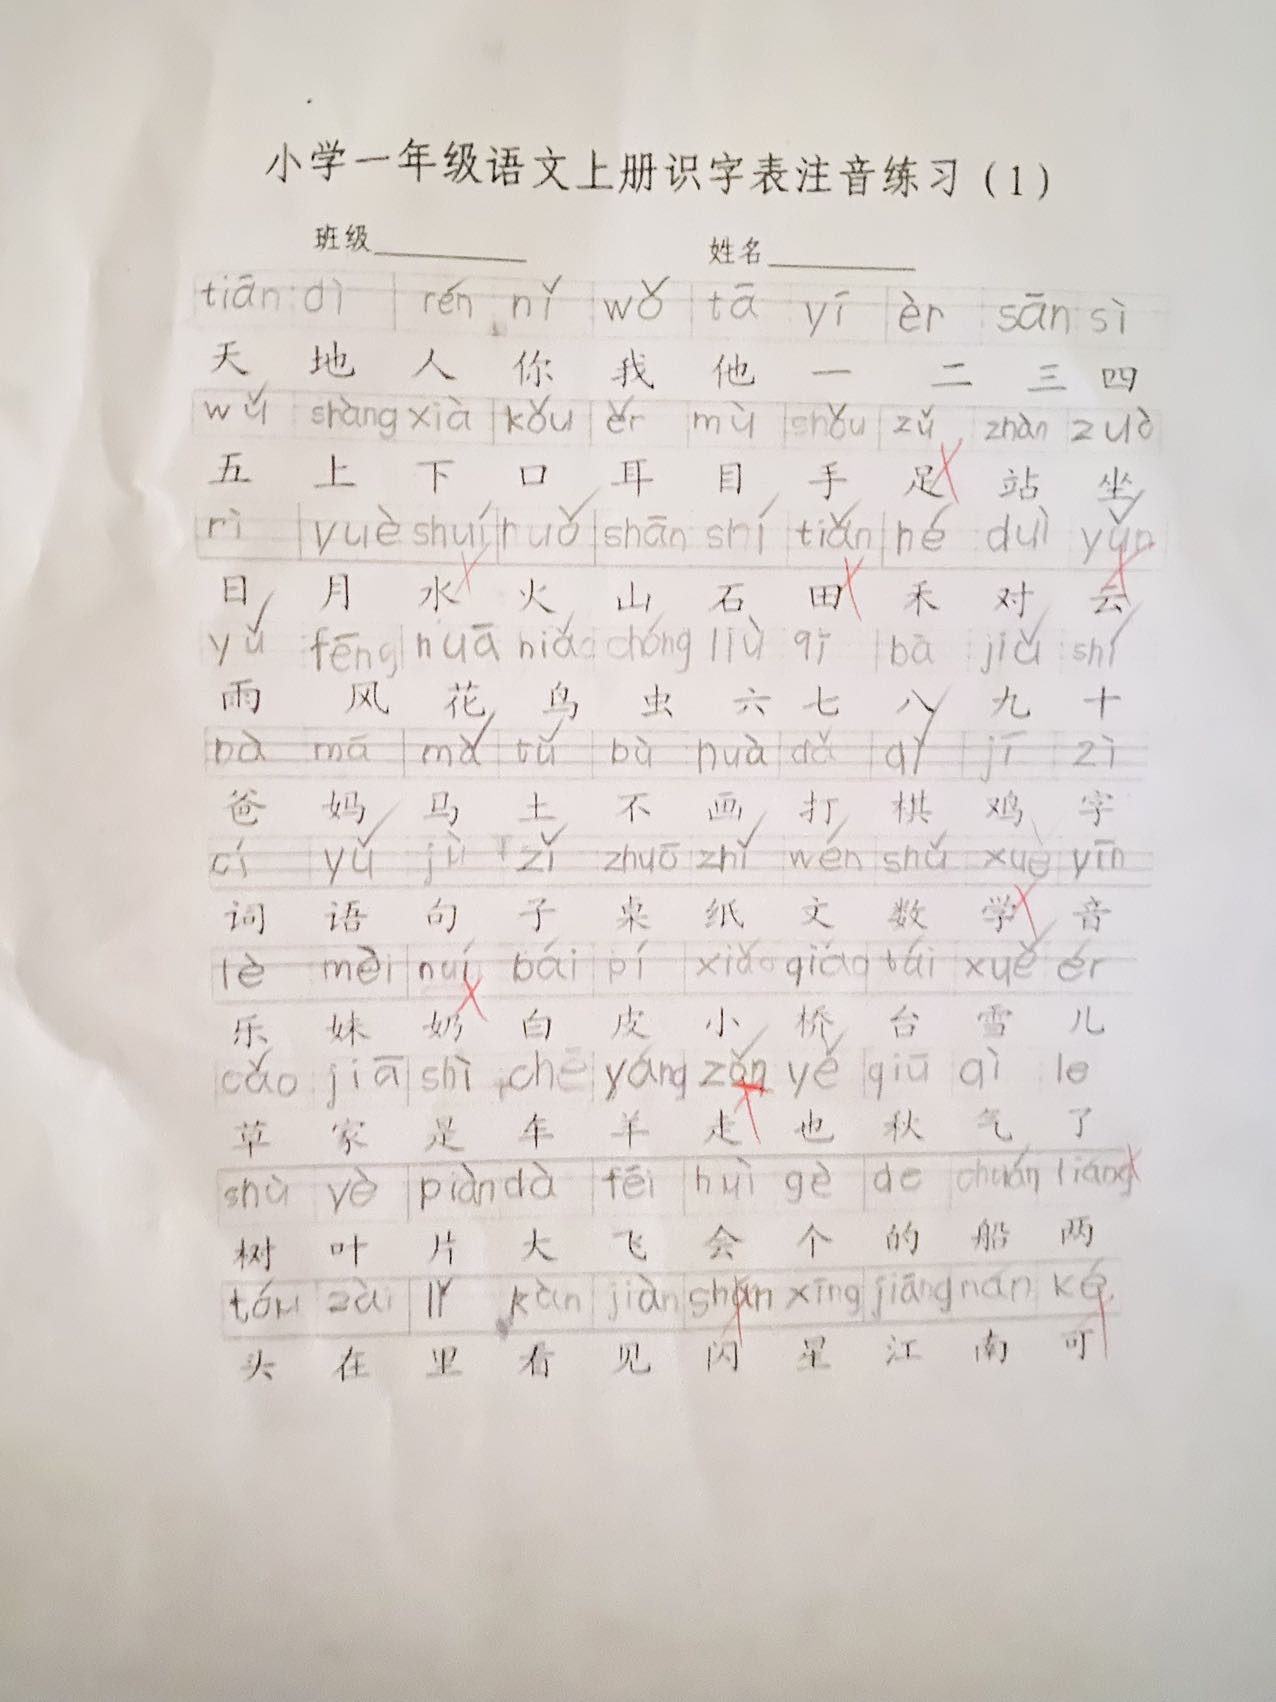 小学一年级语文上册识字表注音练习（1）
班级________ 姓名________
tiān dì rén nǐ wǒ tā yī èr sān sì
天 地 人 你 我 他 一 二 三 四
wǔ shàng xià kǒu ěr mù shǒu zǔ zhàn zuò
五 上 下 口 耳 目 手 足 站 坐
rì yuè shuí huǒ shān shí tiǎn hé duì yǔn
日 月 水 火 山 石 田 禾 对 云
yǔ fēng huā niǎo chóng liù qī bā jiǔ shí
雨 风 花 鸟 虫 六 七 八 九 十
bà mā mǎ tǔ bù huà dǎ qí jī zì
爸 妈 马 土 不 画 打 棋 鸡 字
cí yǔ jù zǐ zhuō zhǐ wén shǔ xuè yīn
词 语 句 子 桌 纸 文 数 学 音
lè mèi nuí bái pí xiǎo qiáo tái xuě ér
乐 妹 奶 白 皮 小 桥 台 雪 儿
cǎo jiā shì chē yáng zǒn yě qiū qì le
草 家 是 车 羊 走 也 秋 气 了
shù yè piàn dà fēi huì gè de chuán liang
树 叶 片 大 飞 会 个 的 船 两
tóu zài lǐ kàn jiàn shán xīng jiāng nán ké
头 在 里 看 见 闪 星 江 南 可